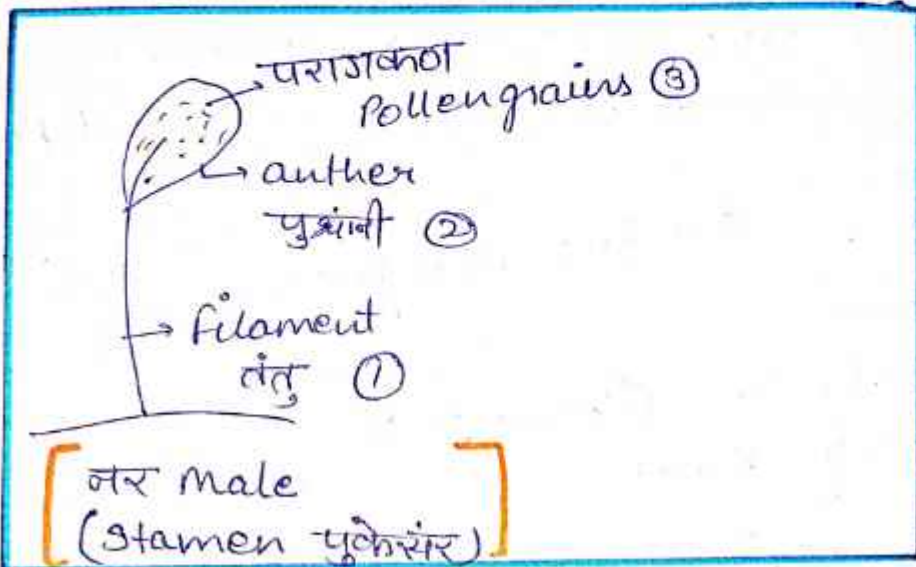 परागकण
Pollengrains ③
anther
पुश्रांवी ②
filament
तंतु ①
नर male
(Stamen पुकेसंर)